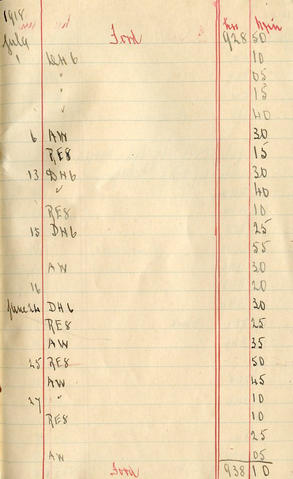 1918 Hrs Min
July Ford 928 50
1 DH6 10
" 05
" 15
" 40
6 AW 30
RE8 15
13 DH6 30
" 40
RE8 10
15 DH6 25
55
AW 30
16 20
June 24 DH6 30
RE8 25
AW 35
25 RE8 50
AW 45
27 " 10
RE8 10
25
AW 05
Ford 938 10